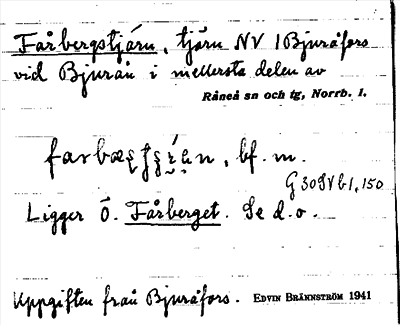 Fårbergstjärn, tjärn NV I Bjuråfors
vid Bjurån i mellersta delen av
Råneå sn och tg, Norrb. l.
bf. m.
G 30SV b1, 150
Ligger Ö. Fårberget. Se d.o.
Uppgiften från Bjuråfors. EDVIN BRÄNNSTRÖM 1941